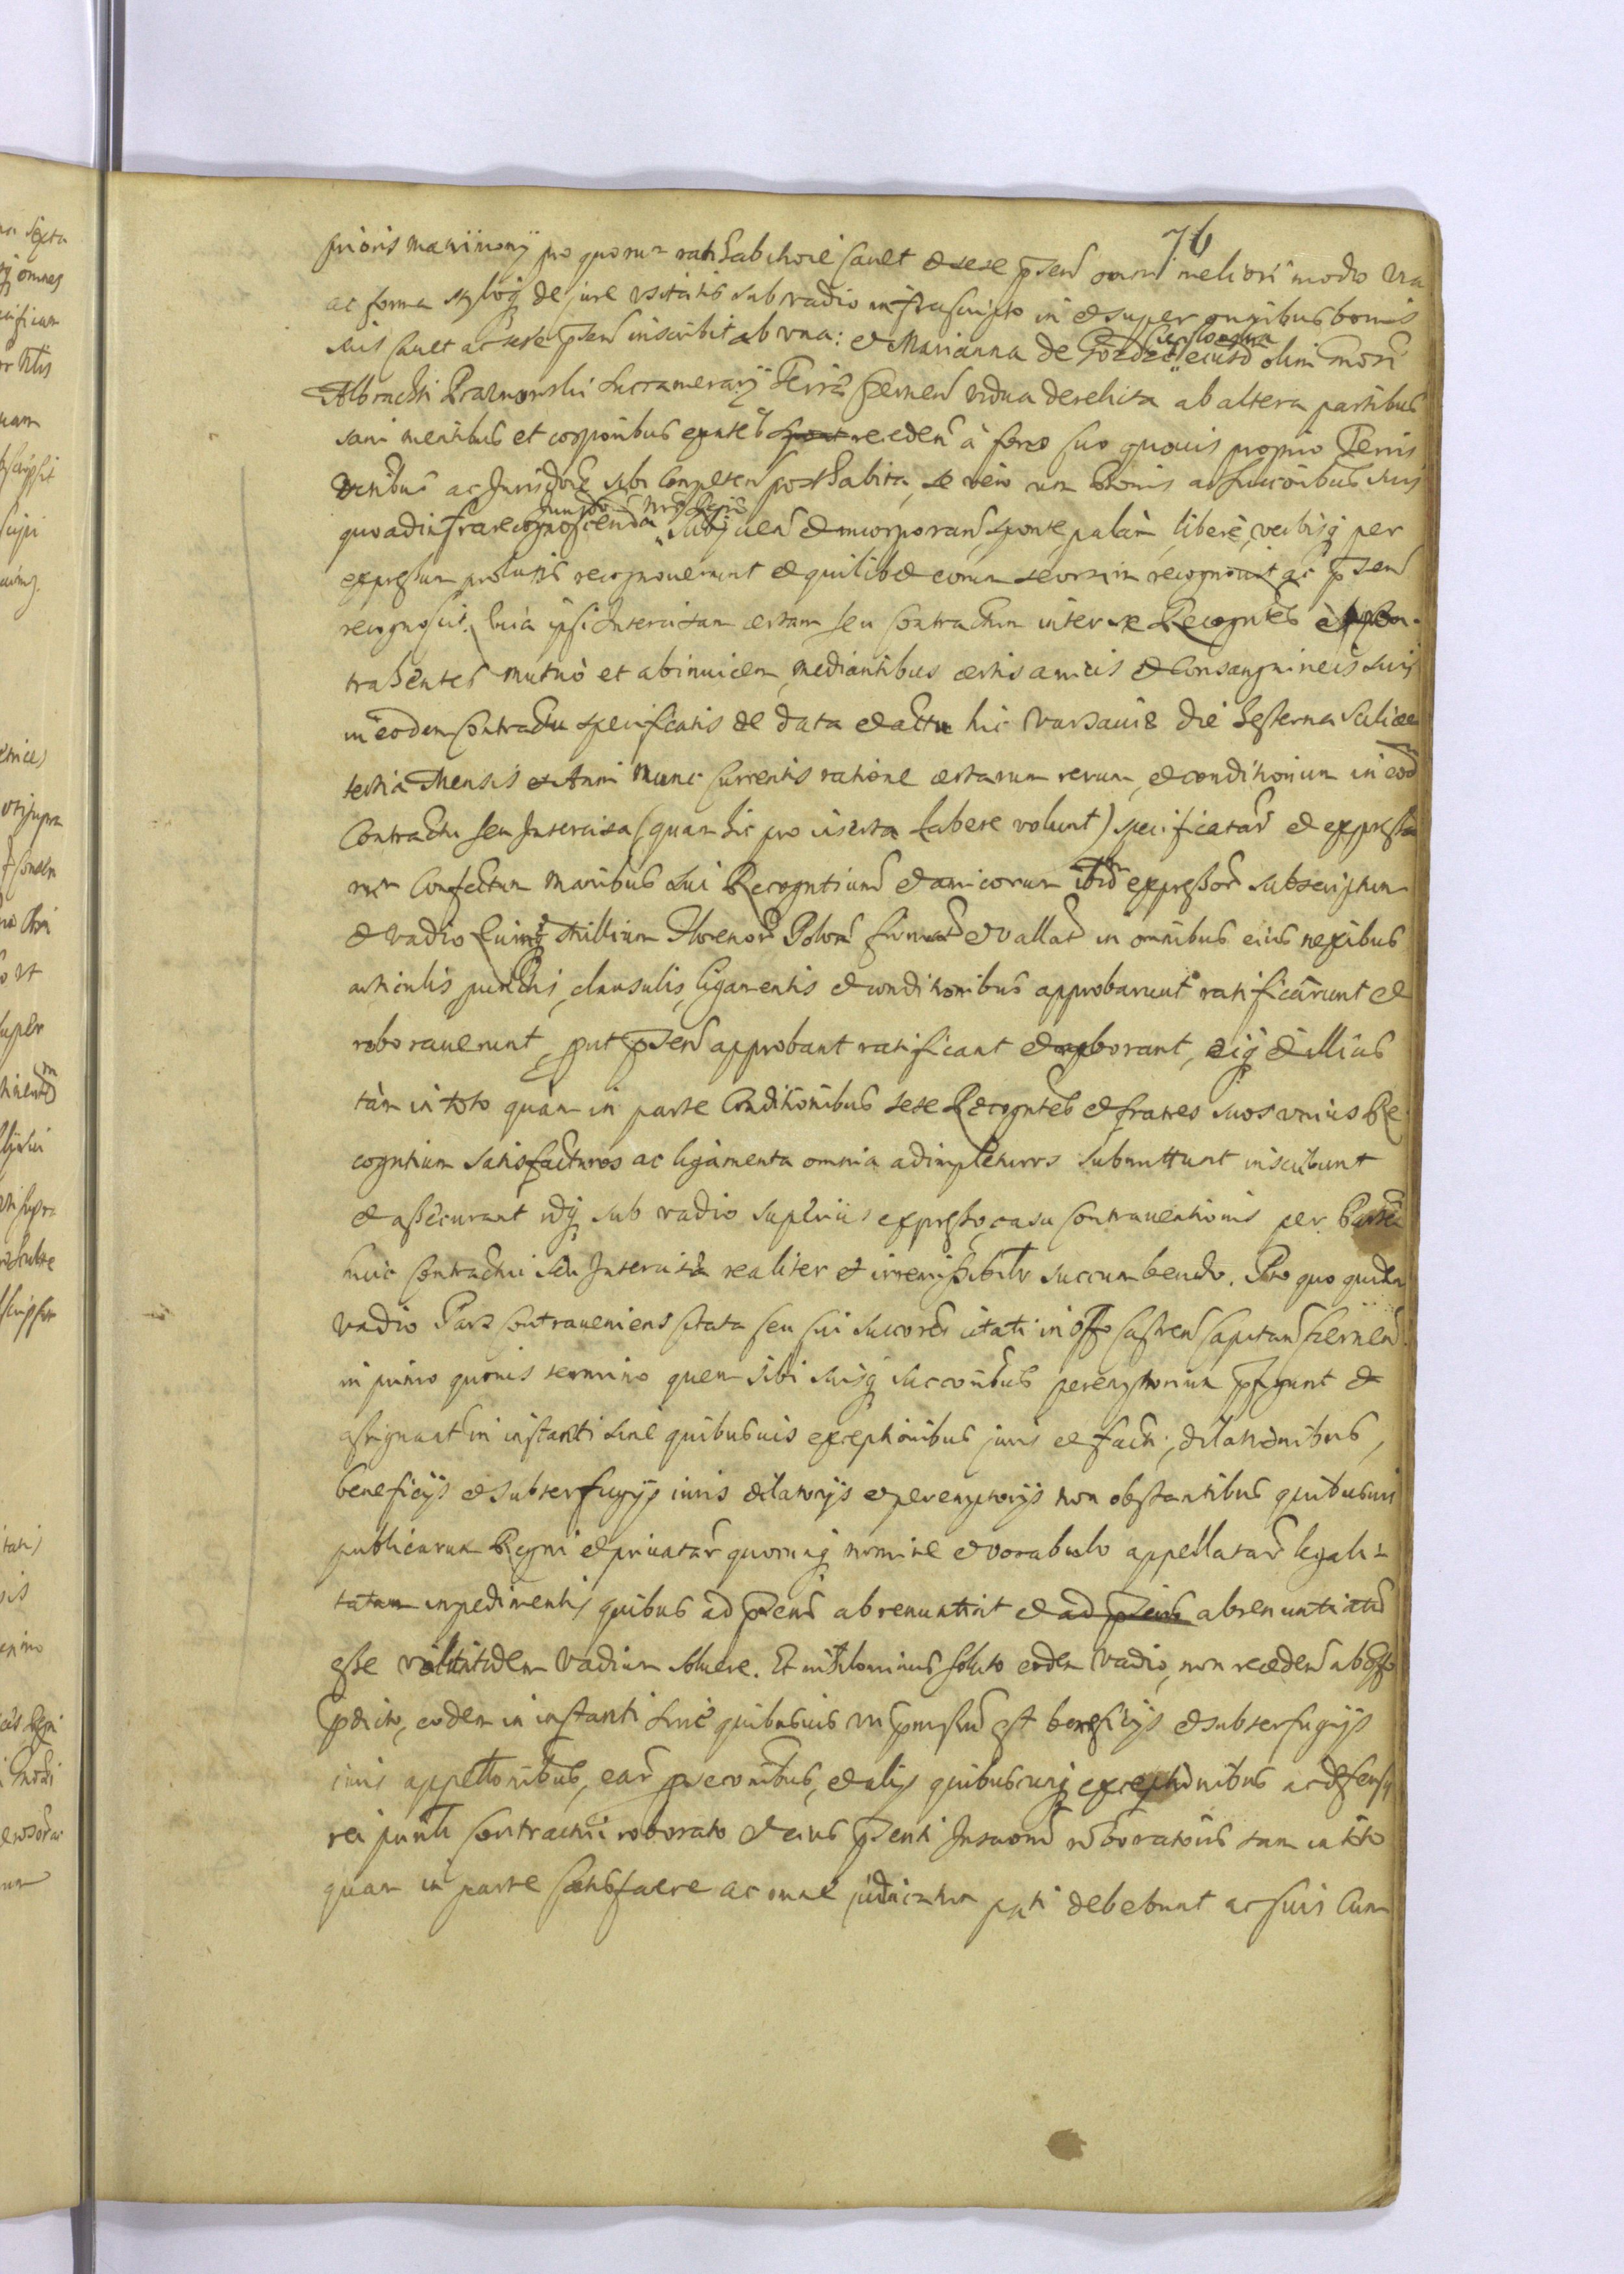 76
prioris matrimonij pro quorum ratihabitione cauet et sese pñtem omni meliori modo via
ac forma styloq de jure vsitatis sub vadio infrascripto in et super omnibus bonis
suis cauet ac sese pñtem inscribit ab vna: et Marianna de eiusd olim Mgci
Albrachti Succamerarij Terræ Cernen vidua derelicta ab altera partibus
sani mentibus et corporibus exntes recedem à foro suo quouis proprio Terris
ac Jurisdone sibi competen posthabita, se vero cum bonis ac succoribus suis
quoad infra recognoscenda subijcien et incorporan, sponte palam, libere, verbisq per
expressum prolatis recognouerunt et quilibet eorum seorsim recognouit ac pñtem
recognoscit. Quia ipsi Intercisam certam seu contractum inter se Recogntes
trahentes mutuò et abinuicem, mediantibus certis amicis et consanguineis suis
in eodem contractu specificatis de data et actu hic Varsauiæ die hesterna scilicet
tertia Mensis et Anni nunc currentis ratione certarum rerum, et conditionum in eod
Contractu seu Intercisa (quam hic pro inserta habere volunt) specificatar et expressa
rum confectum manibus sui Recogntium et amicorum ibid expressor subscriptum
et vadio Millium Florenor Polon firmat et vallat in omnibus eius nexibus
articulis punctis, clausulis, ligamentis et conditionibus approbarunt ratificârunt et
roborauerunt, put pñtem approbant ratificant et roborant, eiq et illius
tàm in toto quàm in parte Conditionibus sese Recogntes et fratres suos vnius Re
cogntium satisfacturos ac ligamenta omnia adimpleturos submittunt inscribunt
et assecurant idq sub vadio superius expresso, casu contrauentionis per Partem
huic contractui seu Intercisæ realiter et irremissibiltr succumbendo. Pro quo quidem
vadio Pars contraueniens citata seu sui succores citati in offo castren capitan Cernen
in primo quouis termino quem sibi suisq succoribus peremptorium pfigunt et
assignant in instanti sine quibusuis exceptionibus juris et facti, dilationibus,
beneficijs et subterfugijs iuris dilatorijs et peremptorijs non obstantibus quibusuis
publicarum Regni et priuatar quocunq nomine et vocabulo appellatar legali-
tatum impedimentis quibus ad pñtes abrenuntiat et ad pñtes abrenuntiatum
esse itidem vadium soluere. Et nihilominus soluto eodem vadio, non recedens ab offo
pdicto, eodem in instanti sine quibusuis vti pmissum est beneficijs et subterfugijs
iuris appellonibus, ear psecutionibus, et alijs quibuscunq exceptionibus ac defensis
rei contractui roborato et eius pñti Inscriom roboratoriis tam in toto
quam in parte satisfacere ac omne judicatum pati debebunt ac suis cum